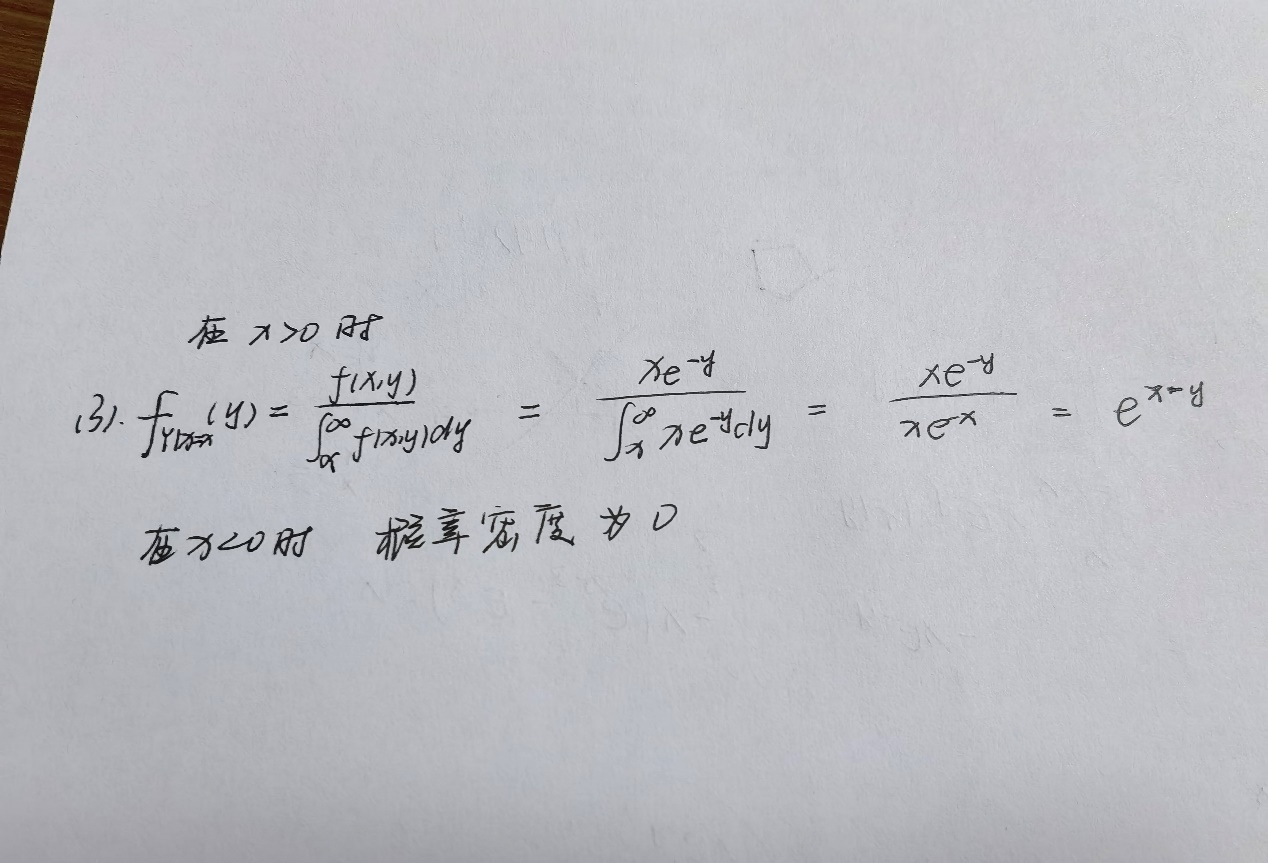 在 x>0 时
(3). f_{Y|X=x}(y) = \frac{f(x,y)}{\int_x^∞ f(x,y)dy} = \frac{xe^{-y}}{\int_x^∞ xe^{-y}dy} = \frac{xe^{-y}}{xe^{-x}} = e^{x-y}
在 x<0 时 概率密度为 0